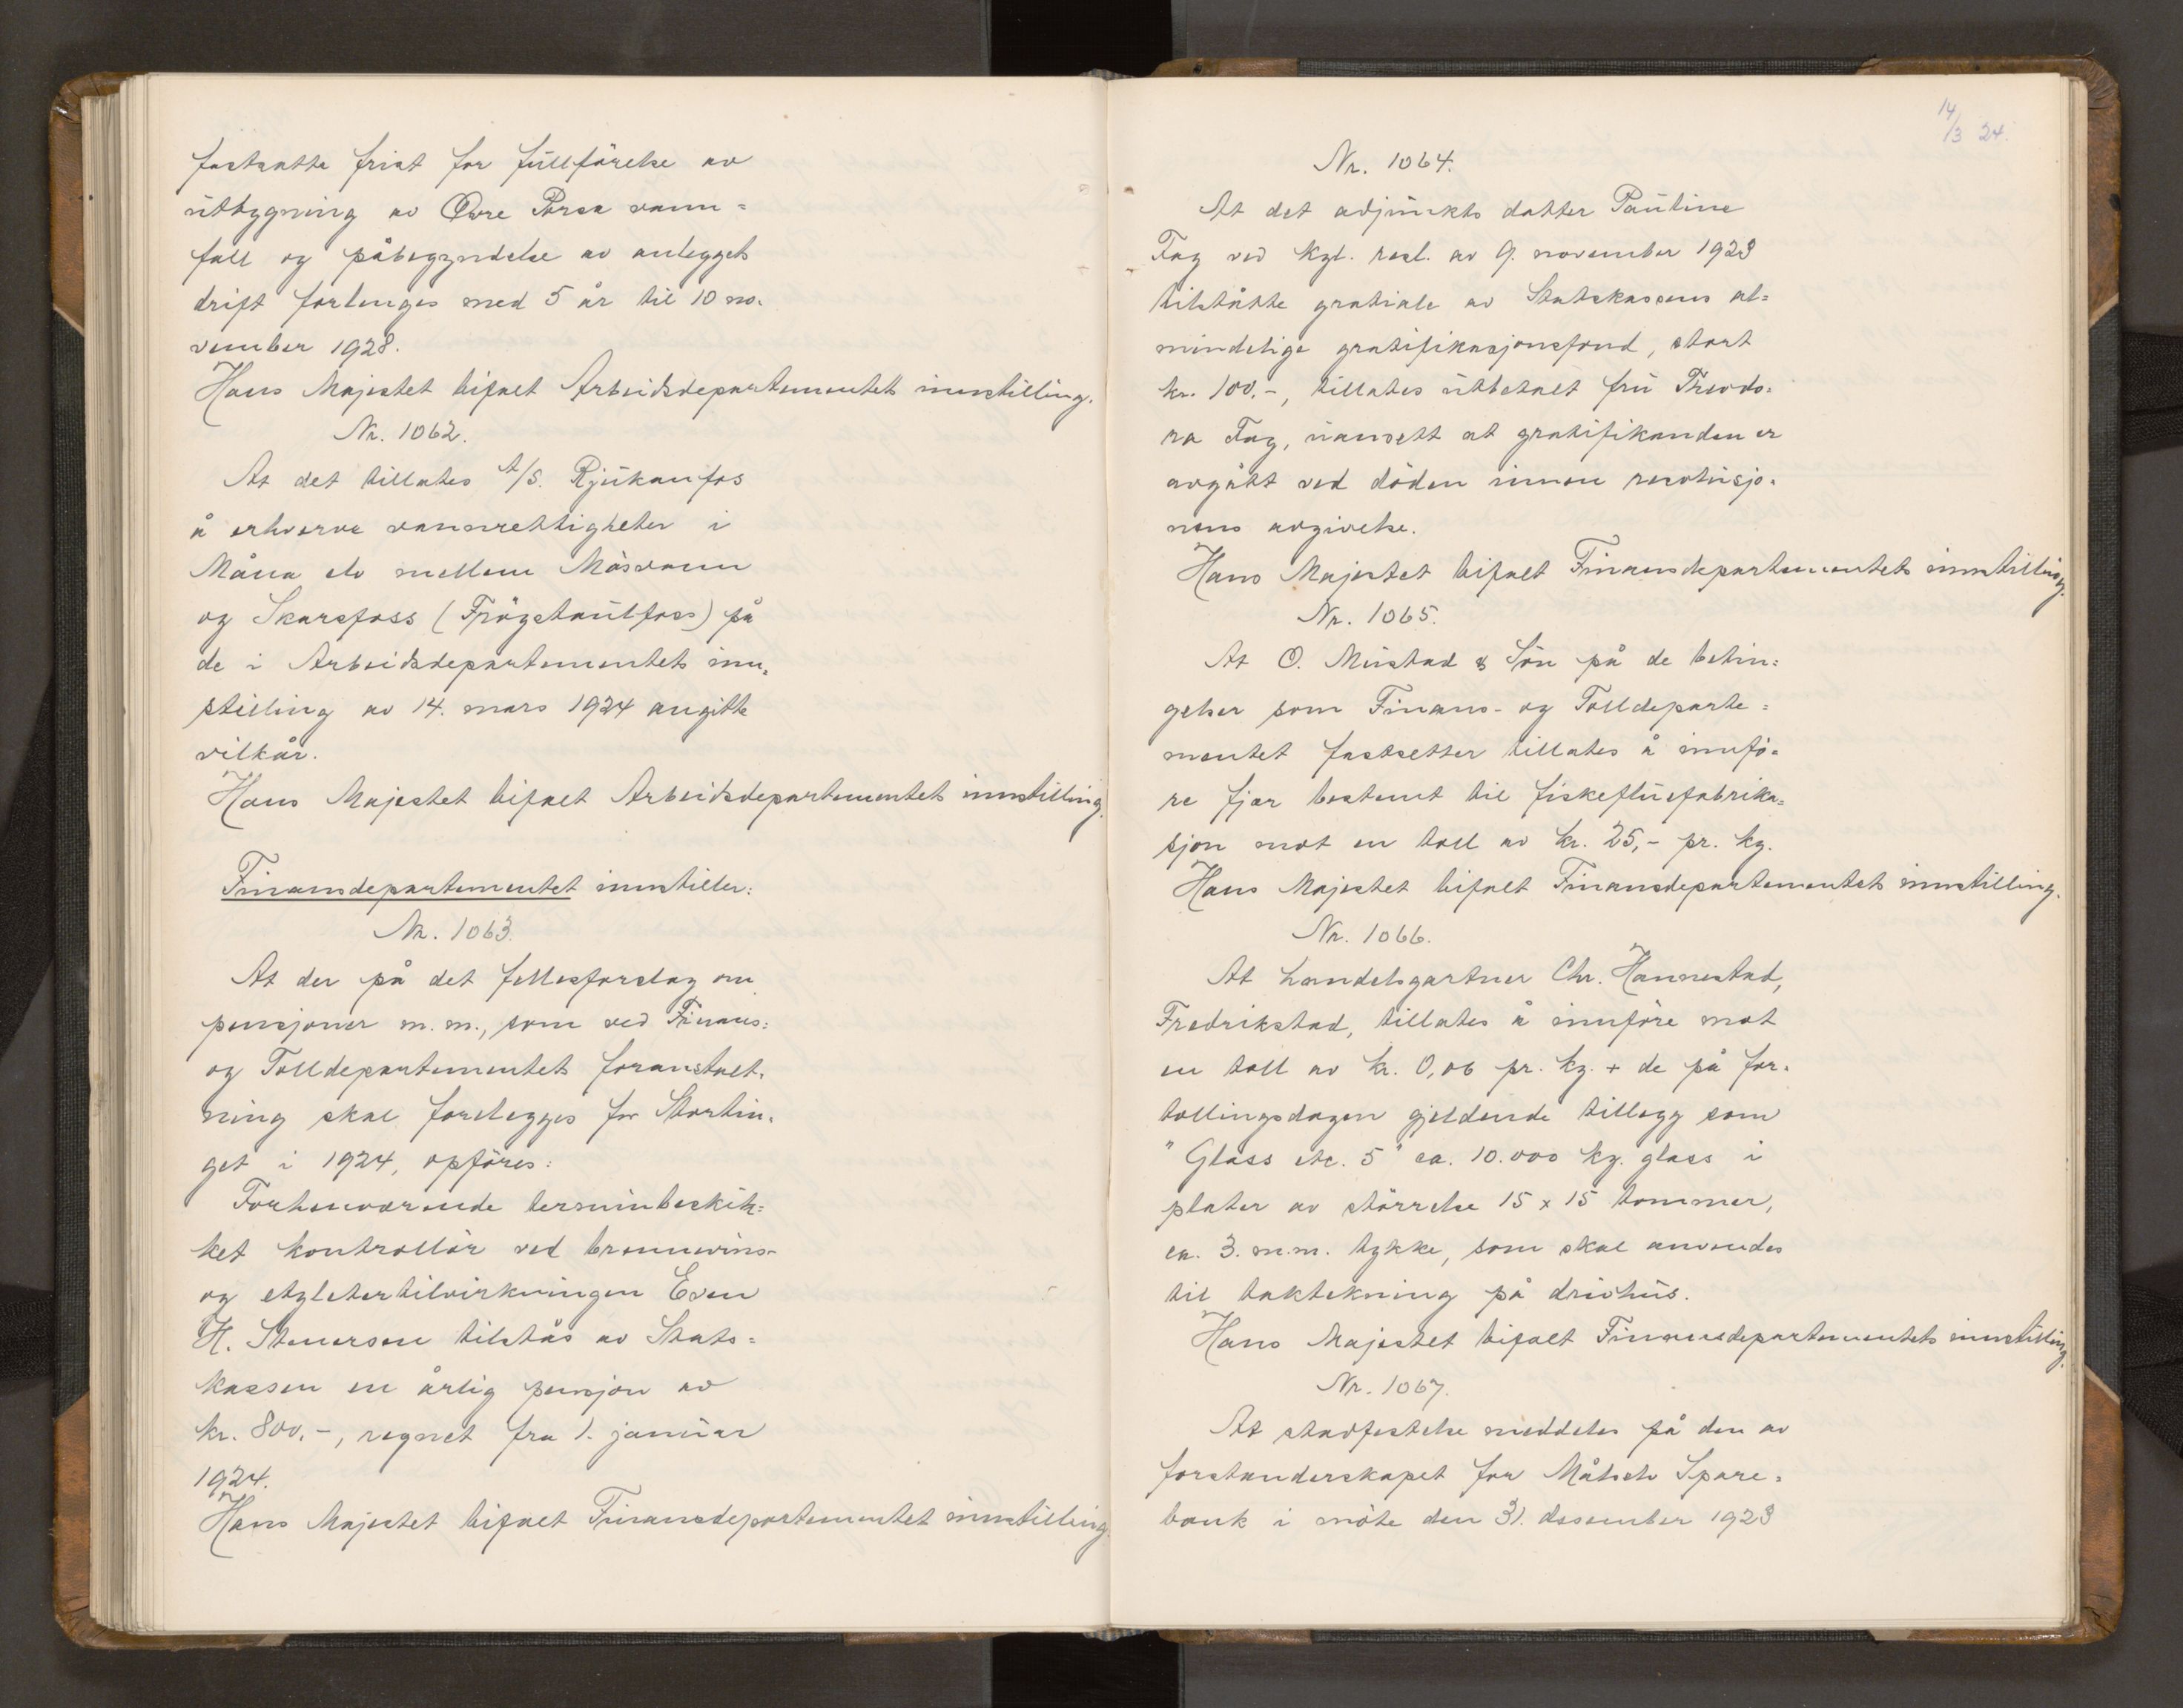 fastsatte frist for fullförelse av
utbygning av Övre Porsa vann=
fall og påbegyndelse av anleggets
drift forlenges med 5 år til 10 no-
vember 1928.
Hans Majestet bifalt Arbeidsdepartementets innstilling.
Nr. 1062.
At det tillates A/S. Rjukanfos
å erhverve vannrettigheter i
Måna elv mellem Mösvann
og Skarsfoss (Fröystaulfoss) på
de i Arbeidsdepartementets inn-
stilling av 14. mars 1924 angitte
vilkår.
Hans Majestet bifalt Arbeidsdepartementets innstilling.
Finansdepartementet innstiller:
Nr. 1063.
At der på det fellesforslag om
pensjoner m.m., som ved Finans-
og Tolldepartementets foranstalt-
ning skal forelegges for Stortin-
get i 1924, opföres:
Forhenværende terminbeskik=
ket kontrollör ved brennevins-
og etyletertilvirkningen Even
H. Stenersen tilståes av Stats=
kassen en årlig pensjon av
kr. 800.-, regnet fra 1. januar
1924.
Hans Majestet bifalt Finansdepartementets innstilling.
14/3 24.
Nr. 1064.
At det adjunkts datter Pauline
Fag ved kgl. resl. av 9. november 1923
tilståtte gratiale av Statskassens al=
mindelige gratifikasjonsfond, stort
kr. 100.-, tillates utbetalt fru Theodo-
ra Fag, uansett at gratifikanden er
avgått ved döden innen resolusjo-
nens avgivelse.
Hans Majestet bifalt Finansdepartementets innstilling.
Nr. 1065.
At O. Mustad & Sön på de betin=
gelser som Finans- og Tolldeparte=
mentet fastsetter tillates å innfö-
re fjær bestemt til fiskefluefabrika=
sjon mot en toll av kr. 25,- pr. kg.
Hans Majestet bifalt Finansdepartementets innstilling.
Nr. 1066.
At handelsgartner Chr. Hannestad,
Fredrikstad, tillates å innföre mot
en toll av kr. 0,06 pr. kg. + de på for-
tollingsdagen gjeldende tillegg som
"Glass etc. 5" ca. 10.000 kg. glass i
plater av störrelse 15 x 15 tommer,
ca. 3. m.m. tykke, som skal anvendes
til taktekning på drivhus.
Hans Majestet bifalt Finansdepartementets innstilling.
Nr. 1067.
At stadfestelse meddeles på den av
forstanderskapet for Målselv Spare-
bank i möte den 31. desember 1923